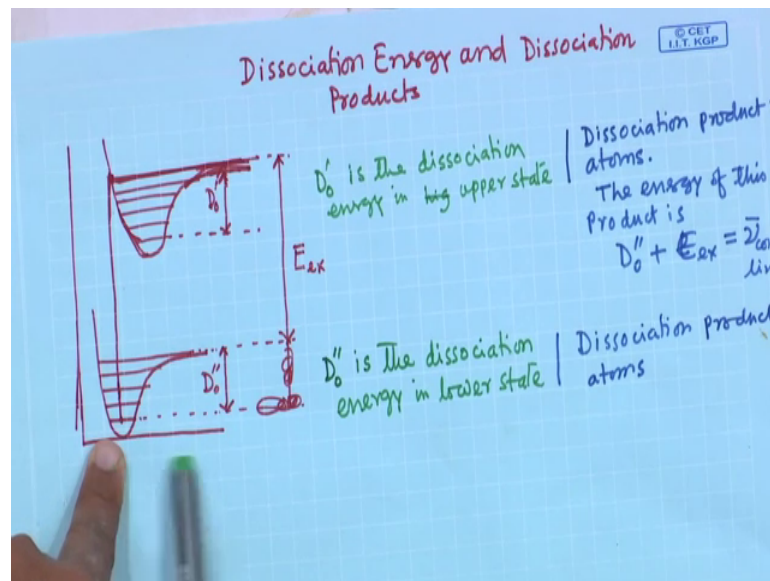 Dissociation Energy and Dissociation
Products
© CET
I.I.T. KGP
D₀' is the dissociation
energy in upper state
Dissociation product
atoms.
The energy of this
Product is
D₀" + Eex =
D₀'
Eex
D₀"
D₀" is the dissociation
energy in lower state
Dissociation
atoms